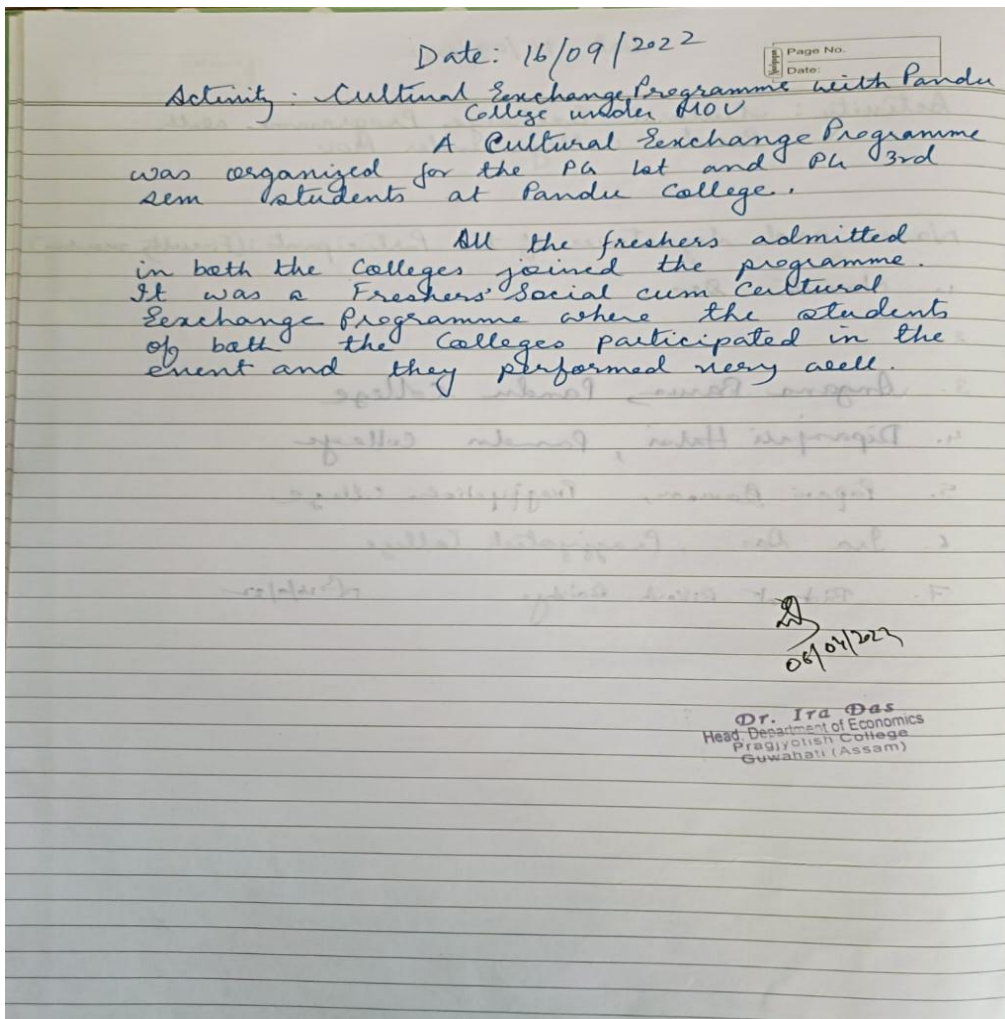 Date: 16/09/2022
Page No.
Date:
Activity: Cultural Exchange Programme with Pandu
College under MOU
A Cultural Exchange Programme
was organized for the PG 1st and PG 3rd
sem students at Pandu College.
All the freshers admitted
in both the Colleges joined the programme.
It was a Freshers' Social cum Cultural
Exchange Programme where the students
of both the Colleges participated in the
event and they performed very well.
06/04/2023
Dr. Ira Das
Head, Department of Economics
Pragjyotish College
Guwahati (Assam)